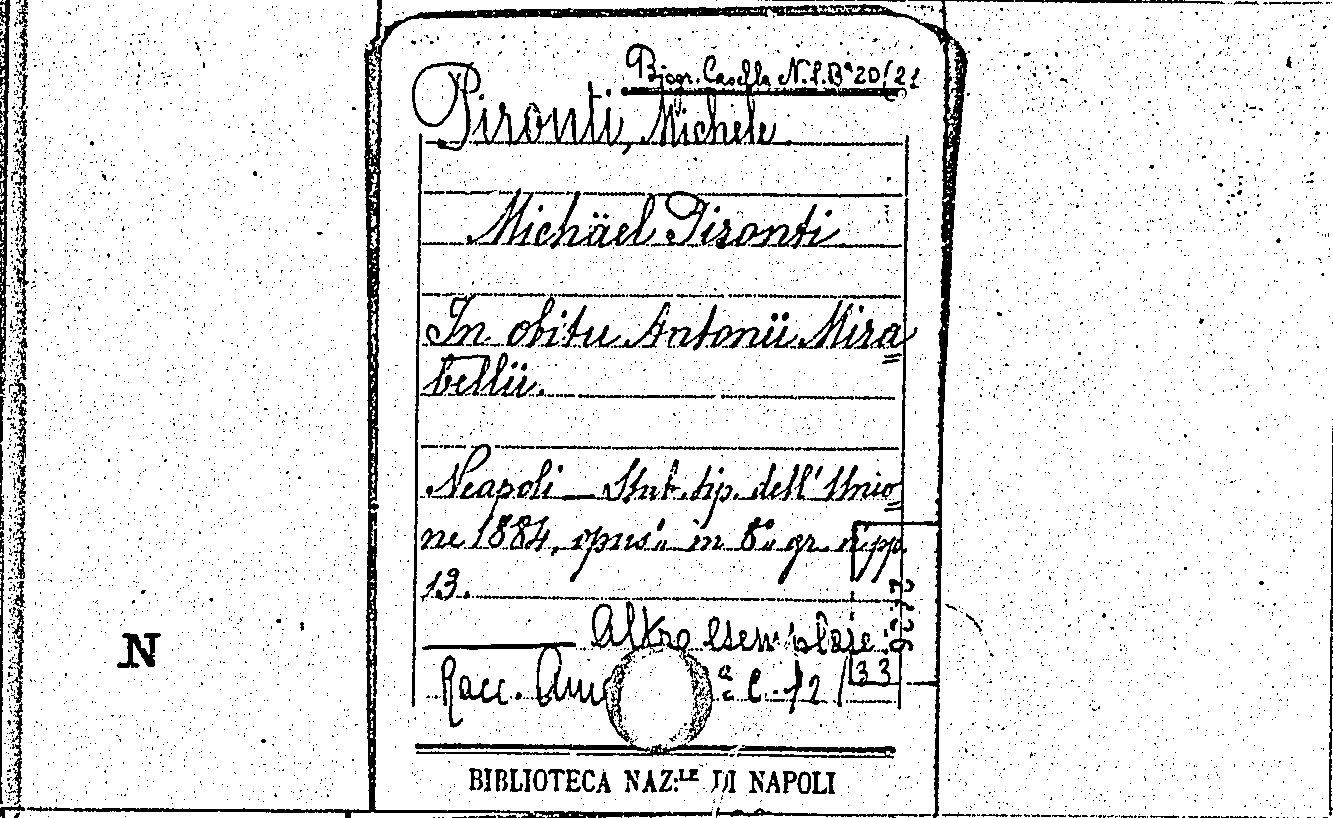 Biogr. Casella N. I. Bª 20/21
Pironti, Michele
Michäel Pironti
In obitu Antonii Mira
bellii.
Neapoli — Stab. tip. dell' Unio
ne 1884, opus.º in 8.º gr. di pp.
13.
Altro esemplare:
Racc. C. 12 / 33
N
BIBLIOTECA NAZ:LE DI NAPOLI